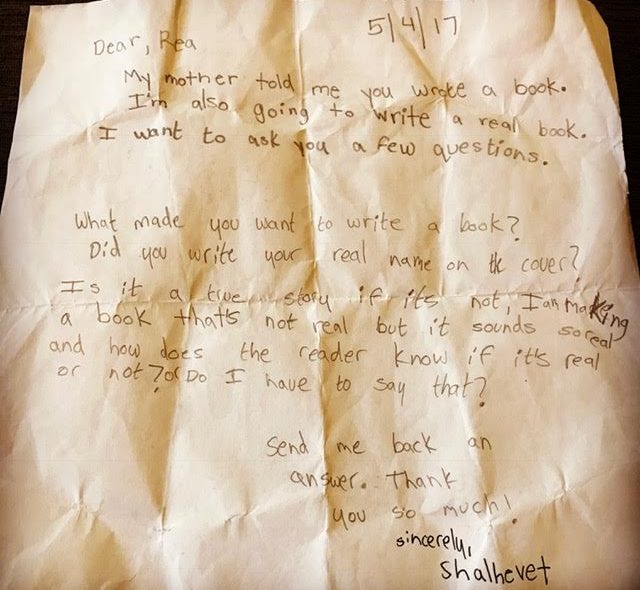 5/4/17
Dear, Rea
My mother told me you wrote a book.
I'm also going to write a real book.
I want to ask you a few questions.
What made you want to write a book?
Did you write your real name on the cover?
Is it a true story if its not, I am making
a book that's not real but it sounds so real
and how does the reader know if it's real
or not? or Do I have to say that?
Send me back an
answer. Thank
you so much!
sincerely,
Shalhevet